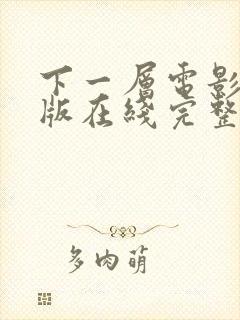 下一層電影
版在綫完整
多肉萌